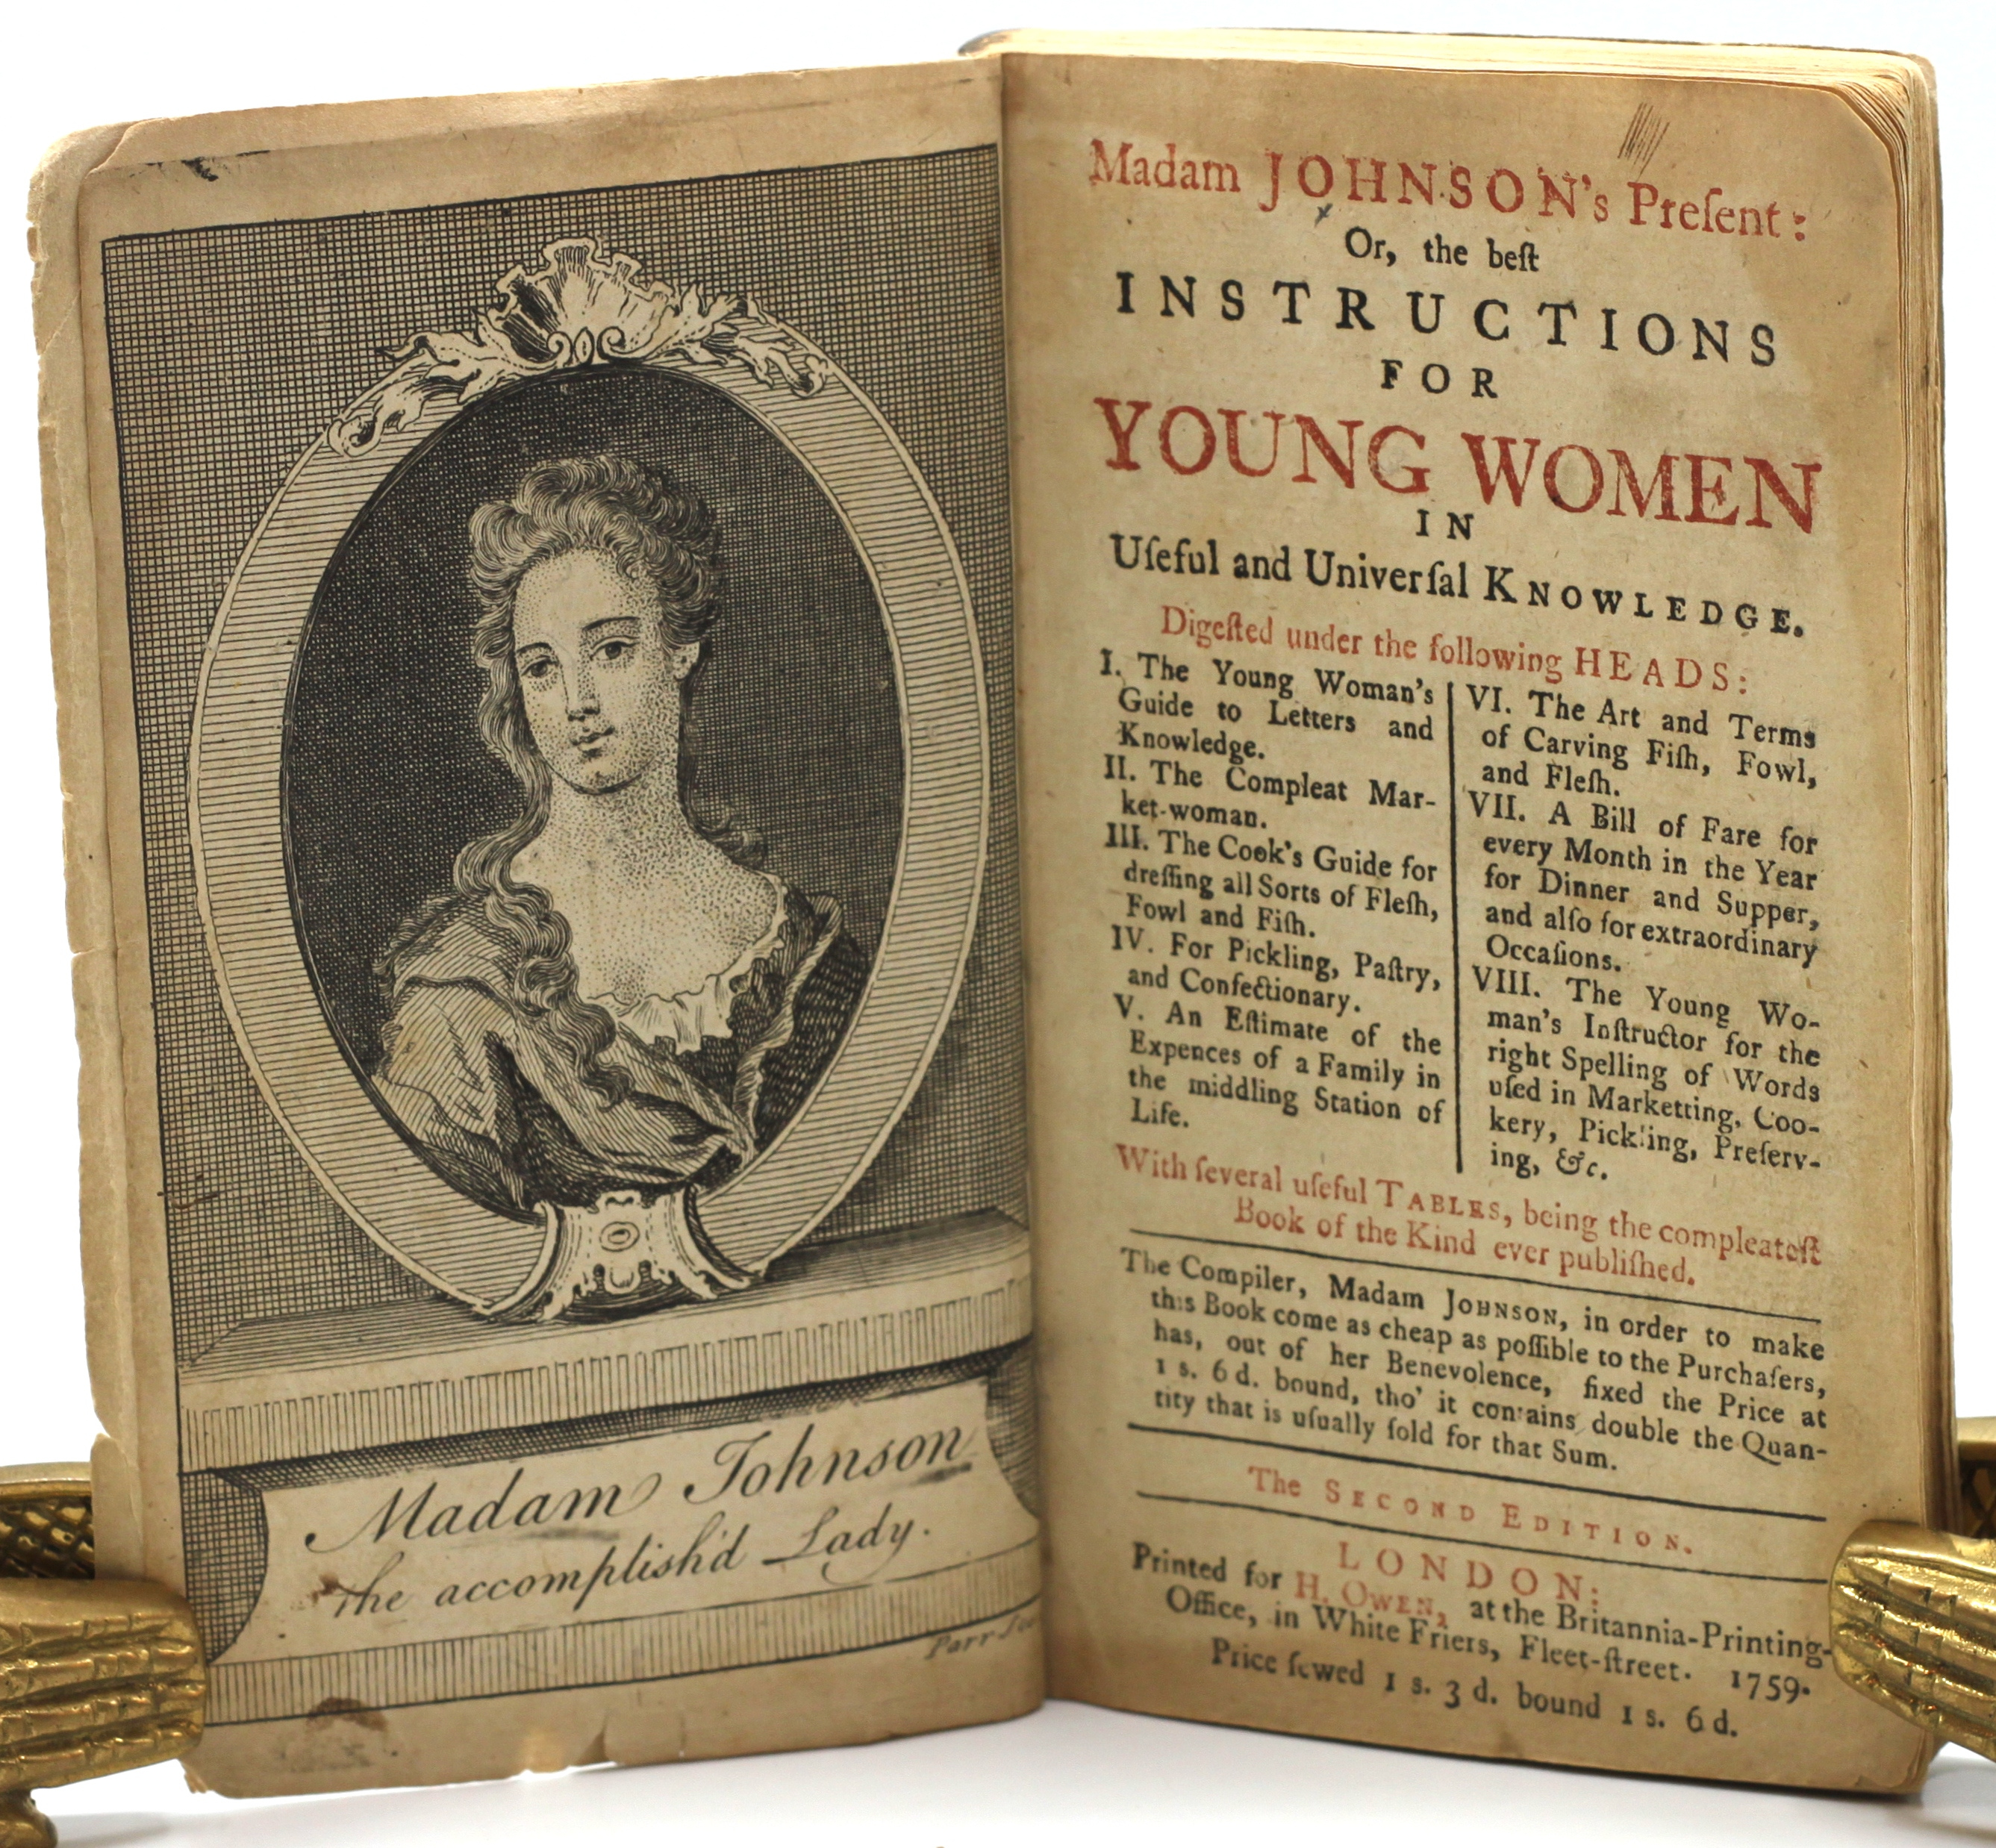 Madam Johnson
the accomplish'd Lady.
Parr
Madam JOHNSON's Preſent:
Or, the beſt
INSTRUCTIONS
FOR
YOUNG WOMEN
IN
Uſeful and Univerſal KNOWLEDGE.
Digeſted under the following HEADS:
I. The Young Woman's
Guide to Letters and
Knowledge.
II. The Compleat Mar-
ket-woman.
III. The Cook's Guide for
dreſſing all Sorts of Fleſh,
Fowl and Fiſh.
IV. For Pickling, Paſtry,
and Confectionary.
V. An Eſtimate of the
Expences of a Family in
the middling Station of
Life.
VI. The Art and Terms
of Carving Fiſh, Fowl,
and Fleſh.
VII. A Bill of Fare for
every Month in the Year
for Dinner and Supper,
and alſo for extraordinary
Occaſions.
VIII. The Young Wo-
man's Inſtructor for the
right Spelling of Words
uſed in Marketting, Coo-
kery, Pickling, Preſerv-
ing, &c.
With ſeveral uſeful TABLES, being the compleateſt
Book of the Kind ever publiſhed.
The Compiler, Madam JOHNSON, in order to make
this Book come as cheap as poſſible to the Purchaſers,
has, out of her Benevolence, fixed the Price at
1 s. 6 d. bound, tho' it contains double the Quan-
tity that is uſually ſold for that Sum.
The SECOND EDITION.
LONDON:
Printed for H. OWEN, at the Britannia-Printing-
Office, in White Friers, Fleet-ſtreet. 1759.
Price ſewed 1 s. 3 d. bound 1 s. 6 d.